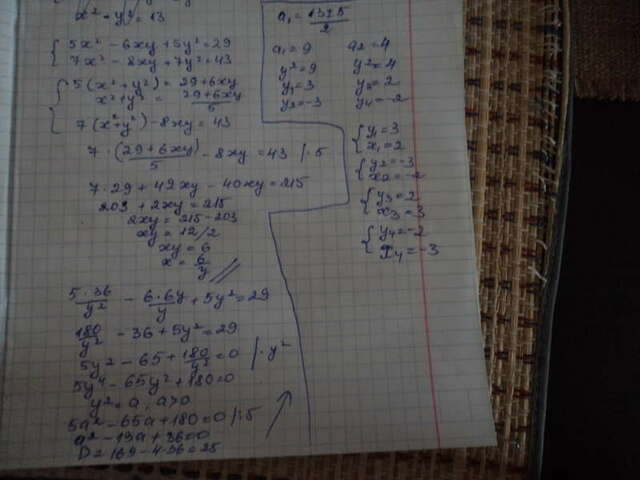 x² + y² = 13
{ 5x² - 6xy + 5y² = 29
7x² - 8xy + 7y² = 43
{ 5(x² + y²) = 29 + 6xy
x² + y² = (29 + 6xy)/5
7(x² + y²) - 8xy = 43
7 · ((29 + 6xy)/5) - 8xy = 43 /·5
7 · 29 + 42xy - 40xy = 215
203 + 2xy = 215
2xy = 215 - 203
xy = 12/2
xy = 6
x = 6/y
5·36/y² - 6·6y/y + 5y² = 29
180/y² - 36 + 5y² = 29
5y² - 65 + 180/y² = 0 /·y²
5y⁴ - 65y² + 180 = 0
y² = a, a>0
5a² - 65a + 180 = 0 /:5
a² - 13a + 36 = 0
D = 169 - 4·36 = 25
a₁ = (13±5)/2
a₁ = 9 a₂ = 4
y² = 9 y² = 4
y₁ = 3 y₃ = 2
y₂ = -3 y₄ = -2
{ y₁ = 3
x₁ = 2
{ y₂ = -3
x₂ = -2
{ y₃ = 2
x₃ = 3
{ y₄ = -2
x₄ = -3